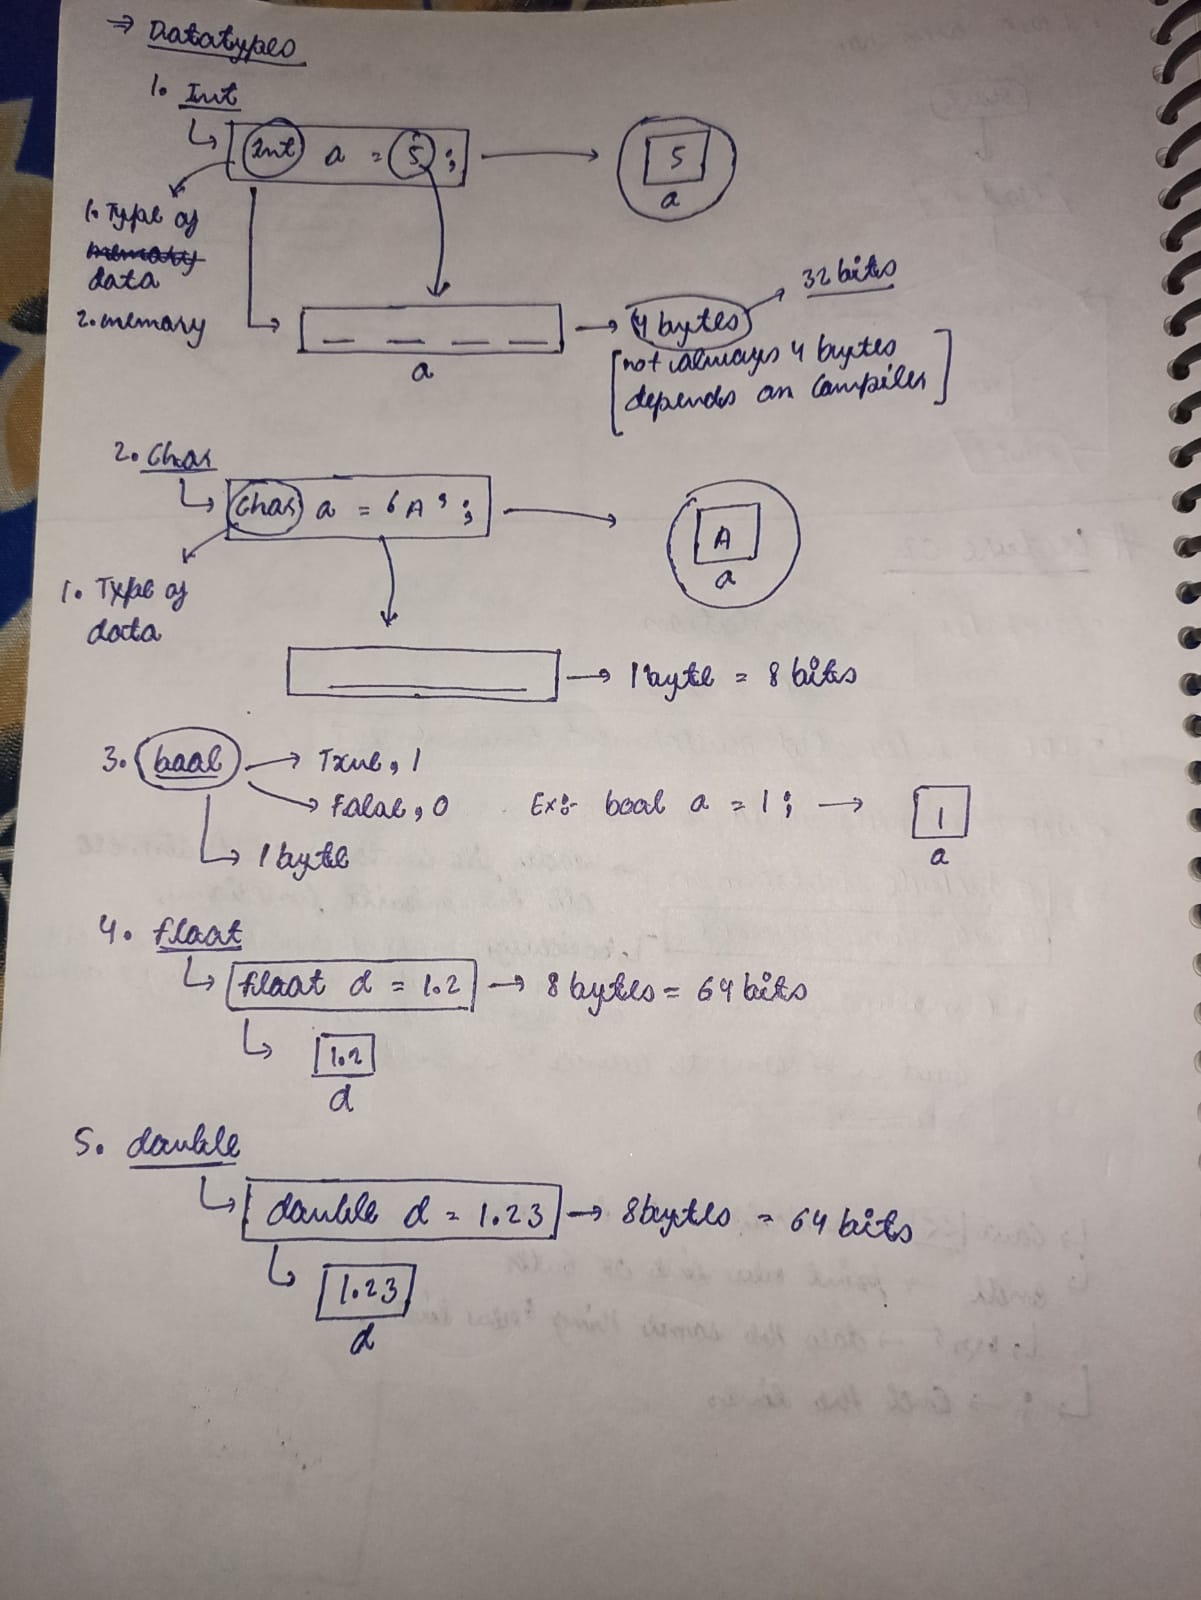 → Datatypes
1. Int
Int a = 5 ;
5
a
1. Type of
memory
data
2. memory
a
4 bytes
32 bits
[not always 4 bytes
depends on Compiler]
2. Char
Char a = 'A' ;
A
a
1. Type of
data
1 byte = 8 bits
3. bool → True, 1
→ False, 0 Ex:- bool a = 1 ; → 1
a
1 byte
4. float
float d = 1.2 → 8 bytes = 64 bits
1.2
d
5. double
double d = 1.23 → 8 bytes = 64 bits
1.23
d